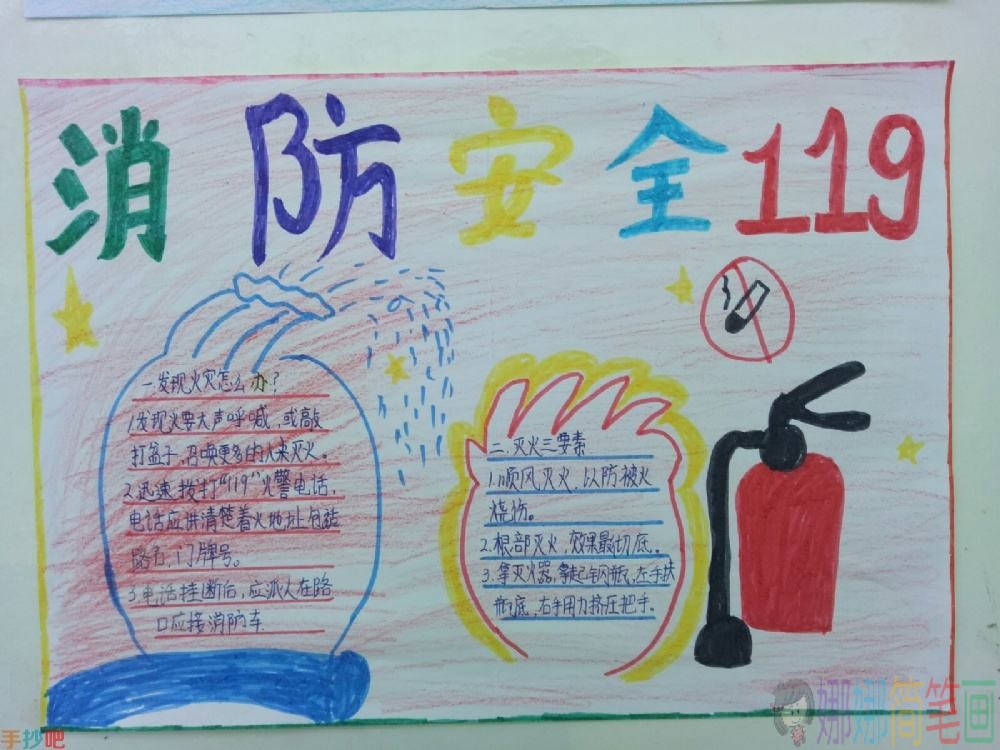 消防安全119
一发现火灾怎么办?
1.发现火要大声呼喊,或敲
打盆子,召唤更多的人来灭火。
2.迅速拨打“119”火警电话,
电话应讲清楚着火地址包括
路名、门牌号。
3.电话挂断后,应派人在路
口应接消防车.
二.灭火三要素
1.顺风灭火,以防被火
烧伤。
2.根部灭火,效果最切底。
3.拿灭火器,拿起铅瓶,左手扶
瓶底,右手用力挤压把手。
手抄吧
娜娜简笔画